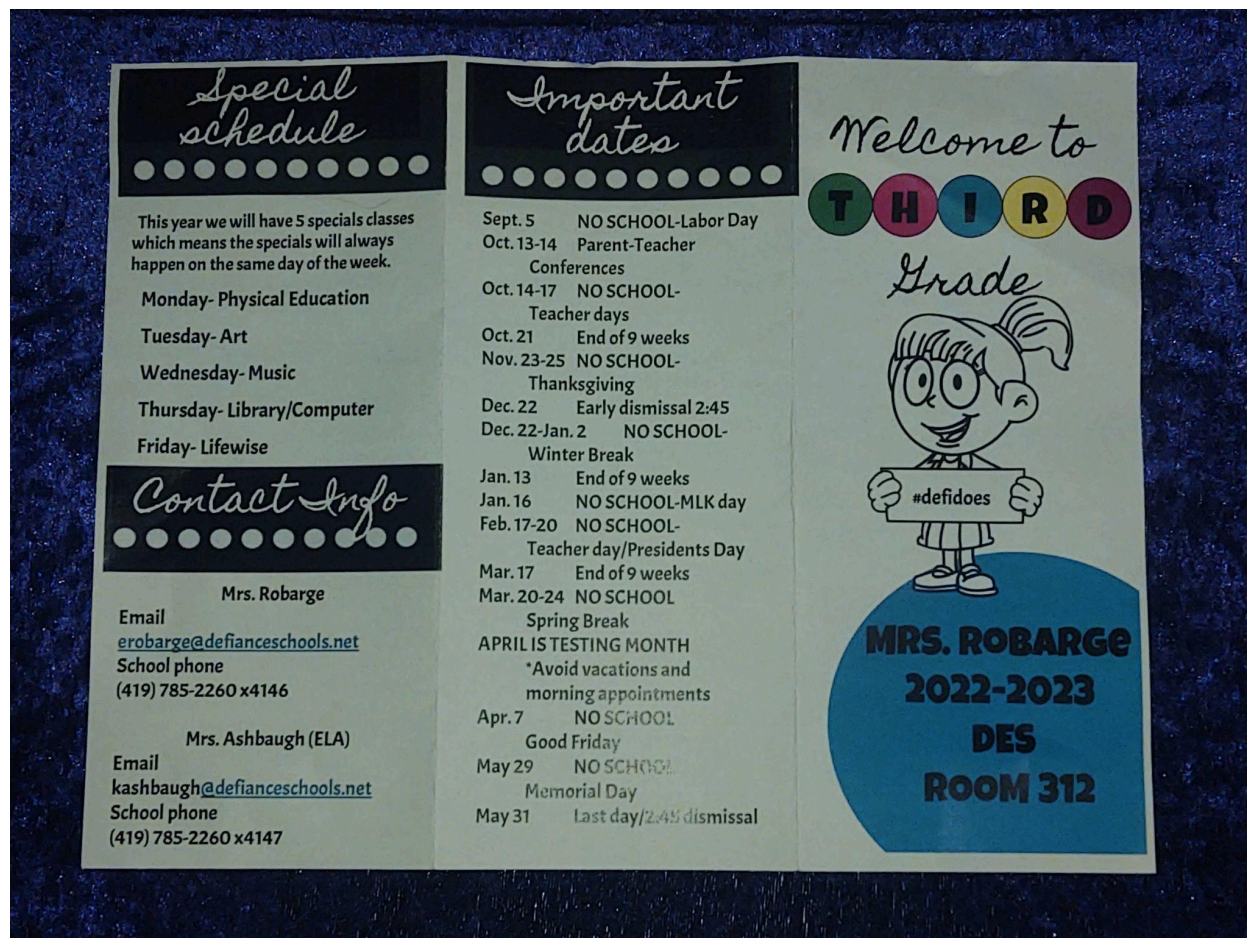 Special
schedule
This year we will have 5 specials classes
which means the specials will always
happen on the same day of the week.
Monday- Physical Education
Tuesday- Art
Wednesday- Music
Thursday- Library/Computer
Friday- Lifewise
Contact Info
Mrs. Robarge
Email
erobarge@defianceschools.net
School phone
(419) 785-2260 x4146
Mrs. Ashbaugh (ELA)
Email
kashbaugh@defianceschools.net
School phone
(419) 785-2260 x4147
Important
dates
Sept. 5 NO SCHOOL-Labor Day
Oct. 13-14 Parent-Teacher
Conferences
Oct. 14-17 NO SCHOOL-
Teacher days
Oct. 21 End of 9 weeks
Nov. 23-25 NO SCHOOL-
Thanksgiving
Dec. 22 Early dismissal 2:45
Dec. 22-Jan. 2 NO SCHOOL-
Winter Break
Jan. 13 End of 9 weeks
Jan. 16 NO SCHOOL-MLK day
Feb. 17-20 NO SCHOOL-
Teacher day/Presidents Day
Mar. 17 End of 9 weeks
Mar. 20-24 NO SCHOOL
Spring Break
APRIL IS TESTING MONTH
*Avoid vacations and
morning appointments
Apr. 7 NO SCHOOL
Good Friday
May 29 NO SCHOOL
Memorial Day
May 31 Last day/2:45 dismissal
Welcome to
THIRD
Grade
#defidoes
MRS. ROBARGe
2022-2023
DES
ROOM 312